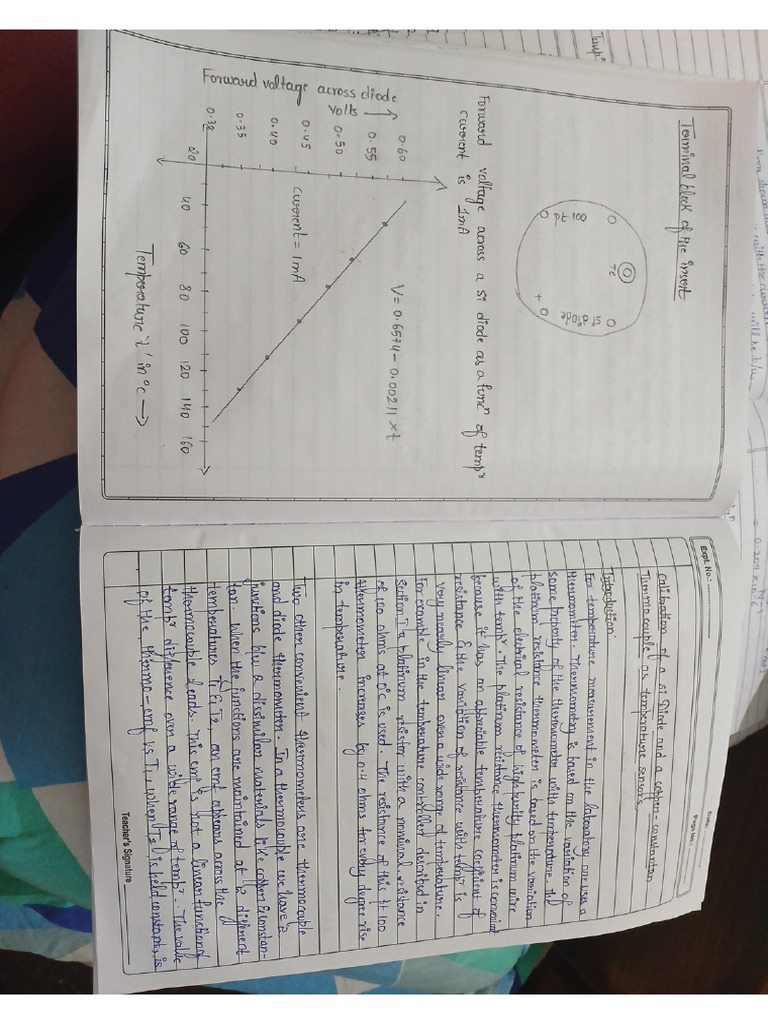 Terminal block of the insert
TC
pt 100
si diode
+
Forward voltage across a si diode as a funcⁿ of tempʳ
current is 1mA
Forward voltage across diode
volts
0.60
0.55
0.50
0.45
0.40
0.35
0.32
V = 0.6574 - 0.00211 xt
current = 1mA
20
40
60
80
100
120
140
160
Temperature 't' in °C
Expt. No.:
Date:
Page No.:
Calibration of a si Diode and a copper-constantan
Thermocouple as temperature sensors
Introduction:
For temperature measurement in the laboratory one uses a
thermometer. Thermometry is based on the variation of
some property of the thermometer with temperature. The
platinum resistance thermometer is based on the variation
of the electrical resistance of high purity platinum wire
with tempʳ. The platinum resistance thermometer is convenient
because it has an appreciable temperature coefficient of
resistance & the variation of resistance with tempʳ is
very nearly linear over a wide range of temperature.
For example in the temperature controlled described in
section I a platinum resistor with a nominal resistance
of 100 ohms at 0°c is used. The resistance of this pt 100
thermometer increases by 0.4 ohms for every degree rise
in temperature.
Two other convenient thermometers are thermocouple
and diode thermometer. In a thermocouple we have 2
junctions b/w a dissimilar materials like copper & constan-
tan. When the junctions are maintained at 2 different
temperatures T₁ & T₂, an emf appears across the
thermocouple leads. This emf is not a linear function of
tempʳ difference over a wide range of tempʳ. The value
of the thermo-emf vs T₁, when T₂ is held constant, is
Teacher's Signature